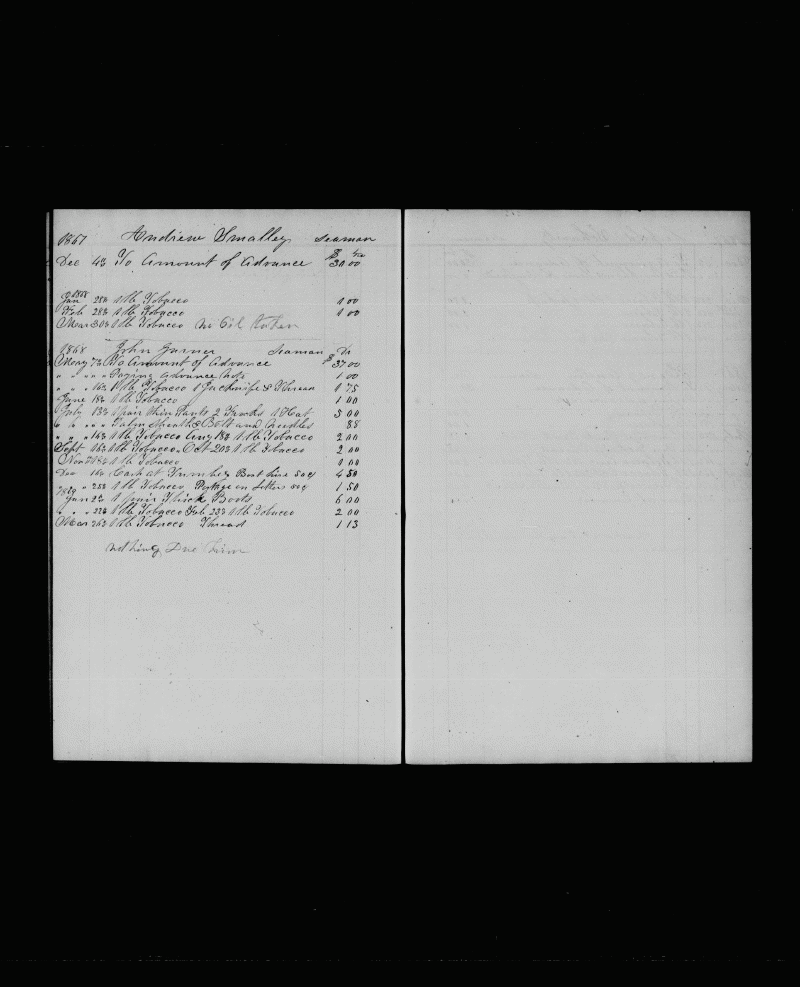 1867 Andrew Smalley Seaman
Dec 4th To Amount of Advance 00
1868
Jan 28th 1 lb Tobacco 1 00
Feb 28th 1 lb Tobacco 1 00
Mar 30th 1 lb Tobacco no Oil taken
1868 John Seaman Dr
May 7th To Amount of Advance $ 37 00
" " " " Paying Advance 1 00
" " " 16th 1 lb Tobacco 1 Jackknife & Thread 1 75
June 18th 1 lb Tobacco 1 00
July 13th 1 pair thin Pants 2 Frocks 1 Hat 5 00
" " " " Palm Sheath & Belt and Needles 88
" " " 14th 1 lb Tobacco Aug 18th 1 lb Tobacco 2 00
Sept 16th 1 lb Tobacco Oct 20th 1 lb Tobacco 2 00
Nov 18th 1 lb Tobacco 1 00
Dec 16th Cash at Tumbez Boat hire 50c 4 50
" " " 25th 1 lb Tobacco Postage on Letters 50c 1 50
1869
Jan 2d 1 pair Thick Boots 6 00
" " " 22d 1 lb Tobacco Feb 23d 1 lb Tobacco 2 00
Mar 26th 1 lb Tobacco Thread 1 13
nothing Due him